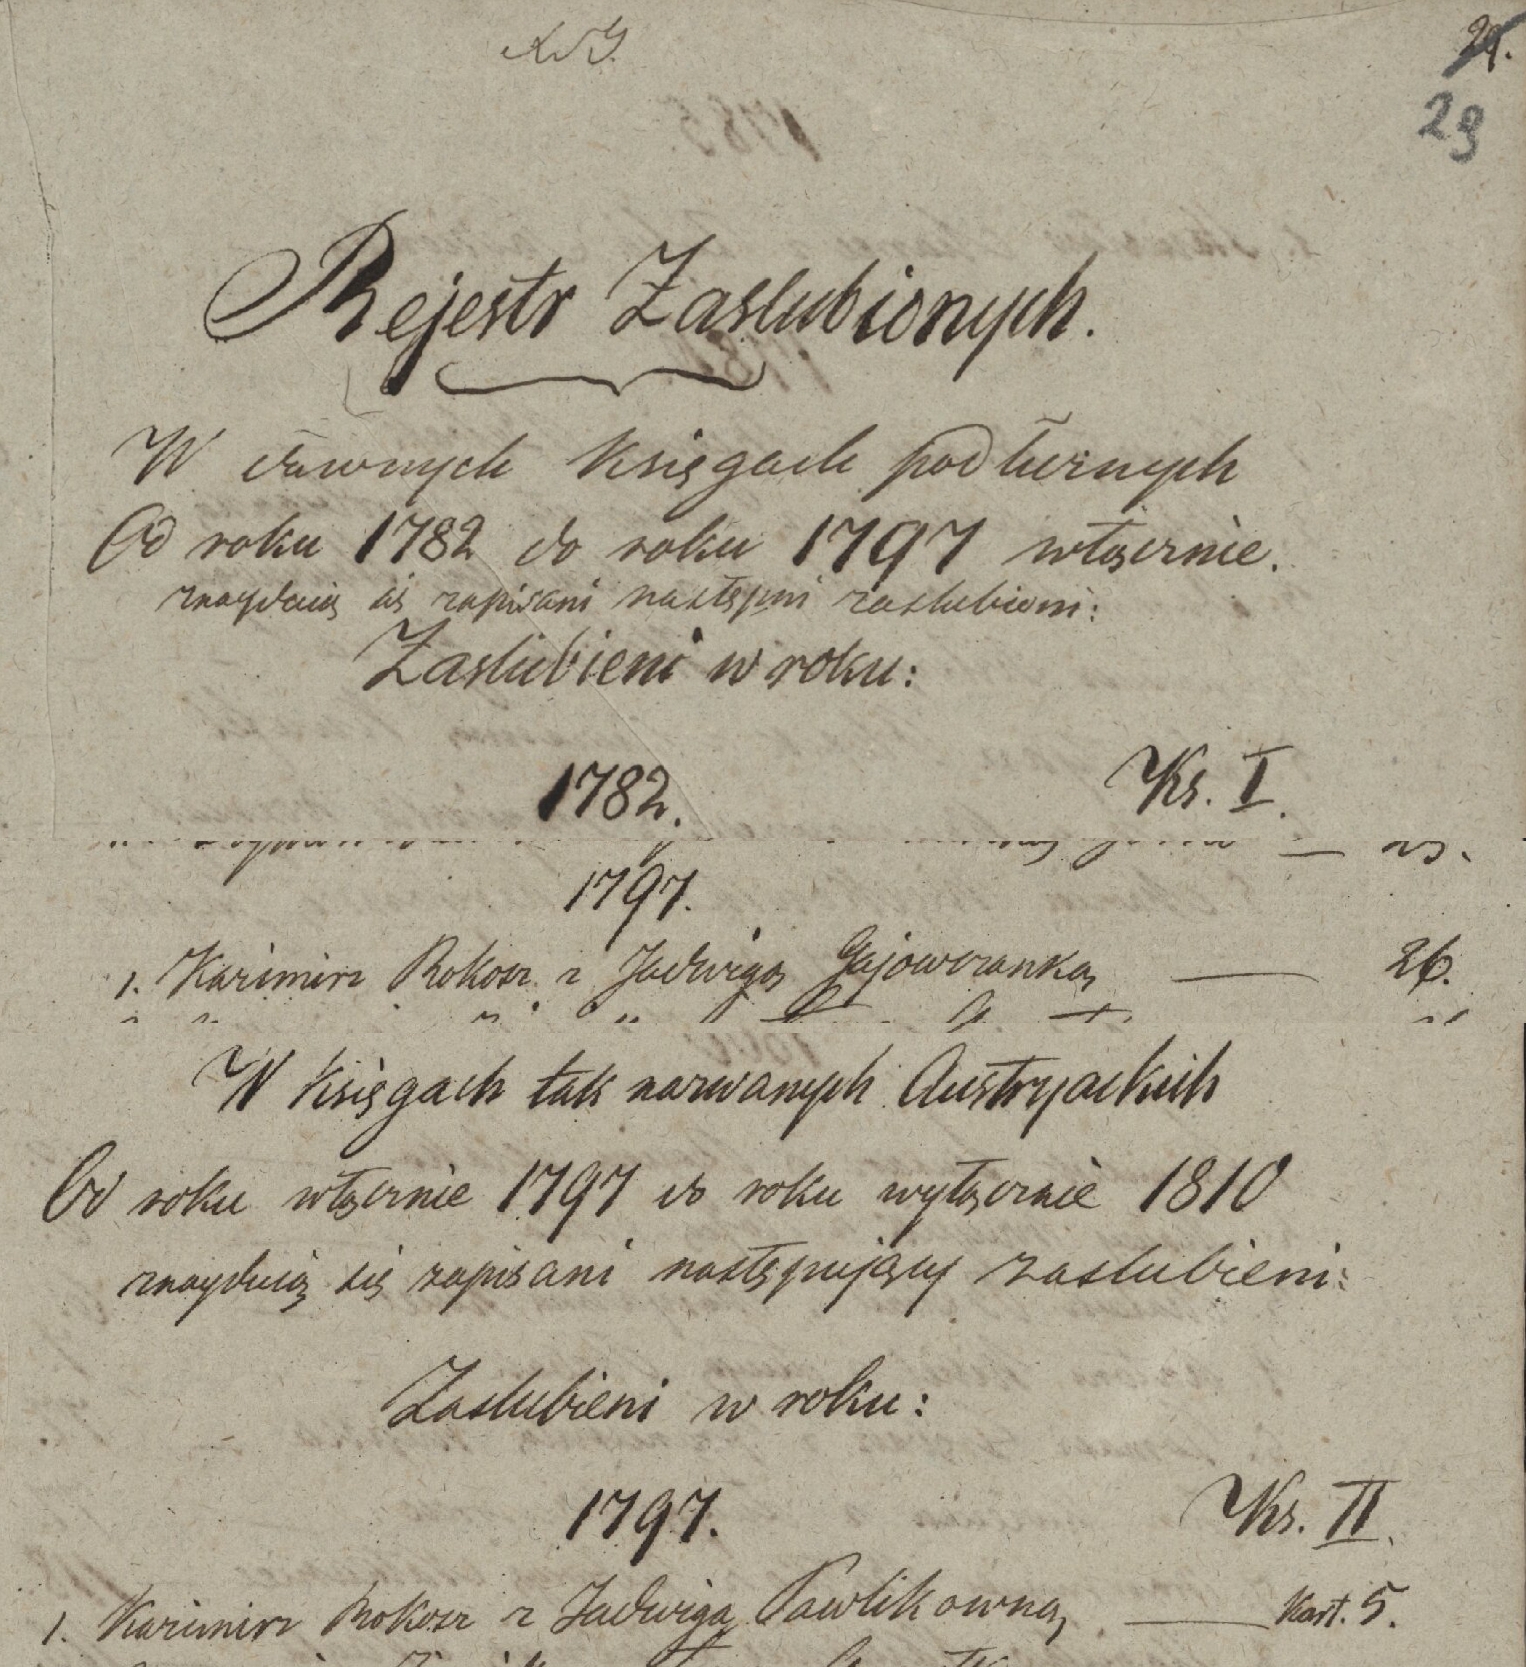 29.
29
Rejestr Zaslubionych.
W dawnych księgach podłużnych
Od roku 1782 do roku 1797 włącznie.
znaydują się zapisani następni zaslubieni:
Zaslubieni w roku:
1782. Ks. I.
1797.
1. Kazimirz Rokosz z Jadwigą Gajowczanką — 26.
W księgach tak nazwanych Austryackich
Od roku włącznie 1797 do roku wyłącznie 1810
znaydują się zapisani następujący zaslubieni:
Zaslubieni w roku:
1797. Ks. II.
1. Kazimirz Rokosz z Jadwigą Pawlikowną — Kart. 5.